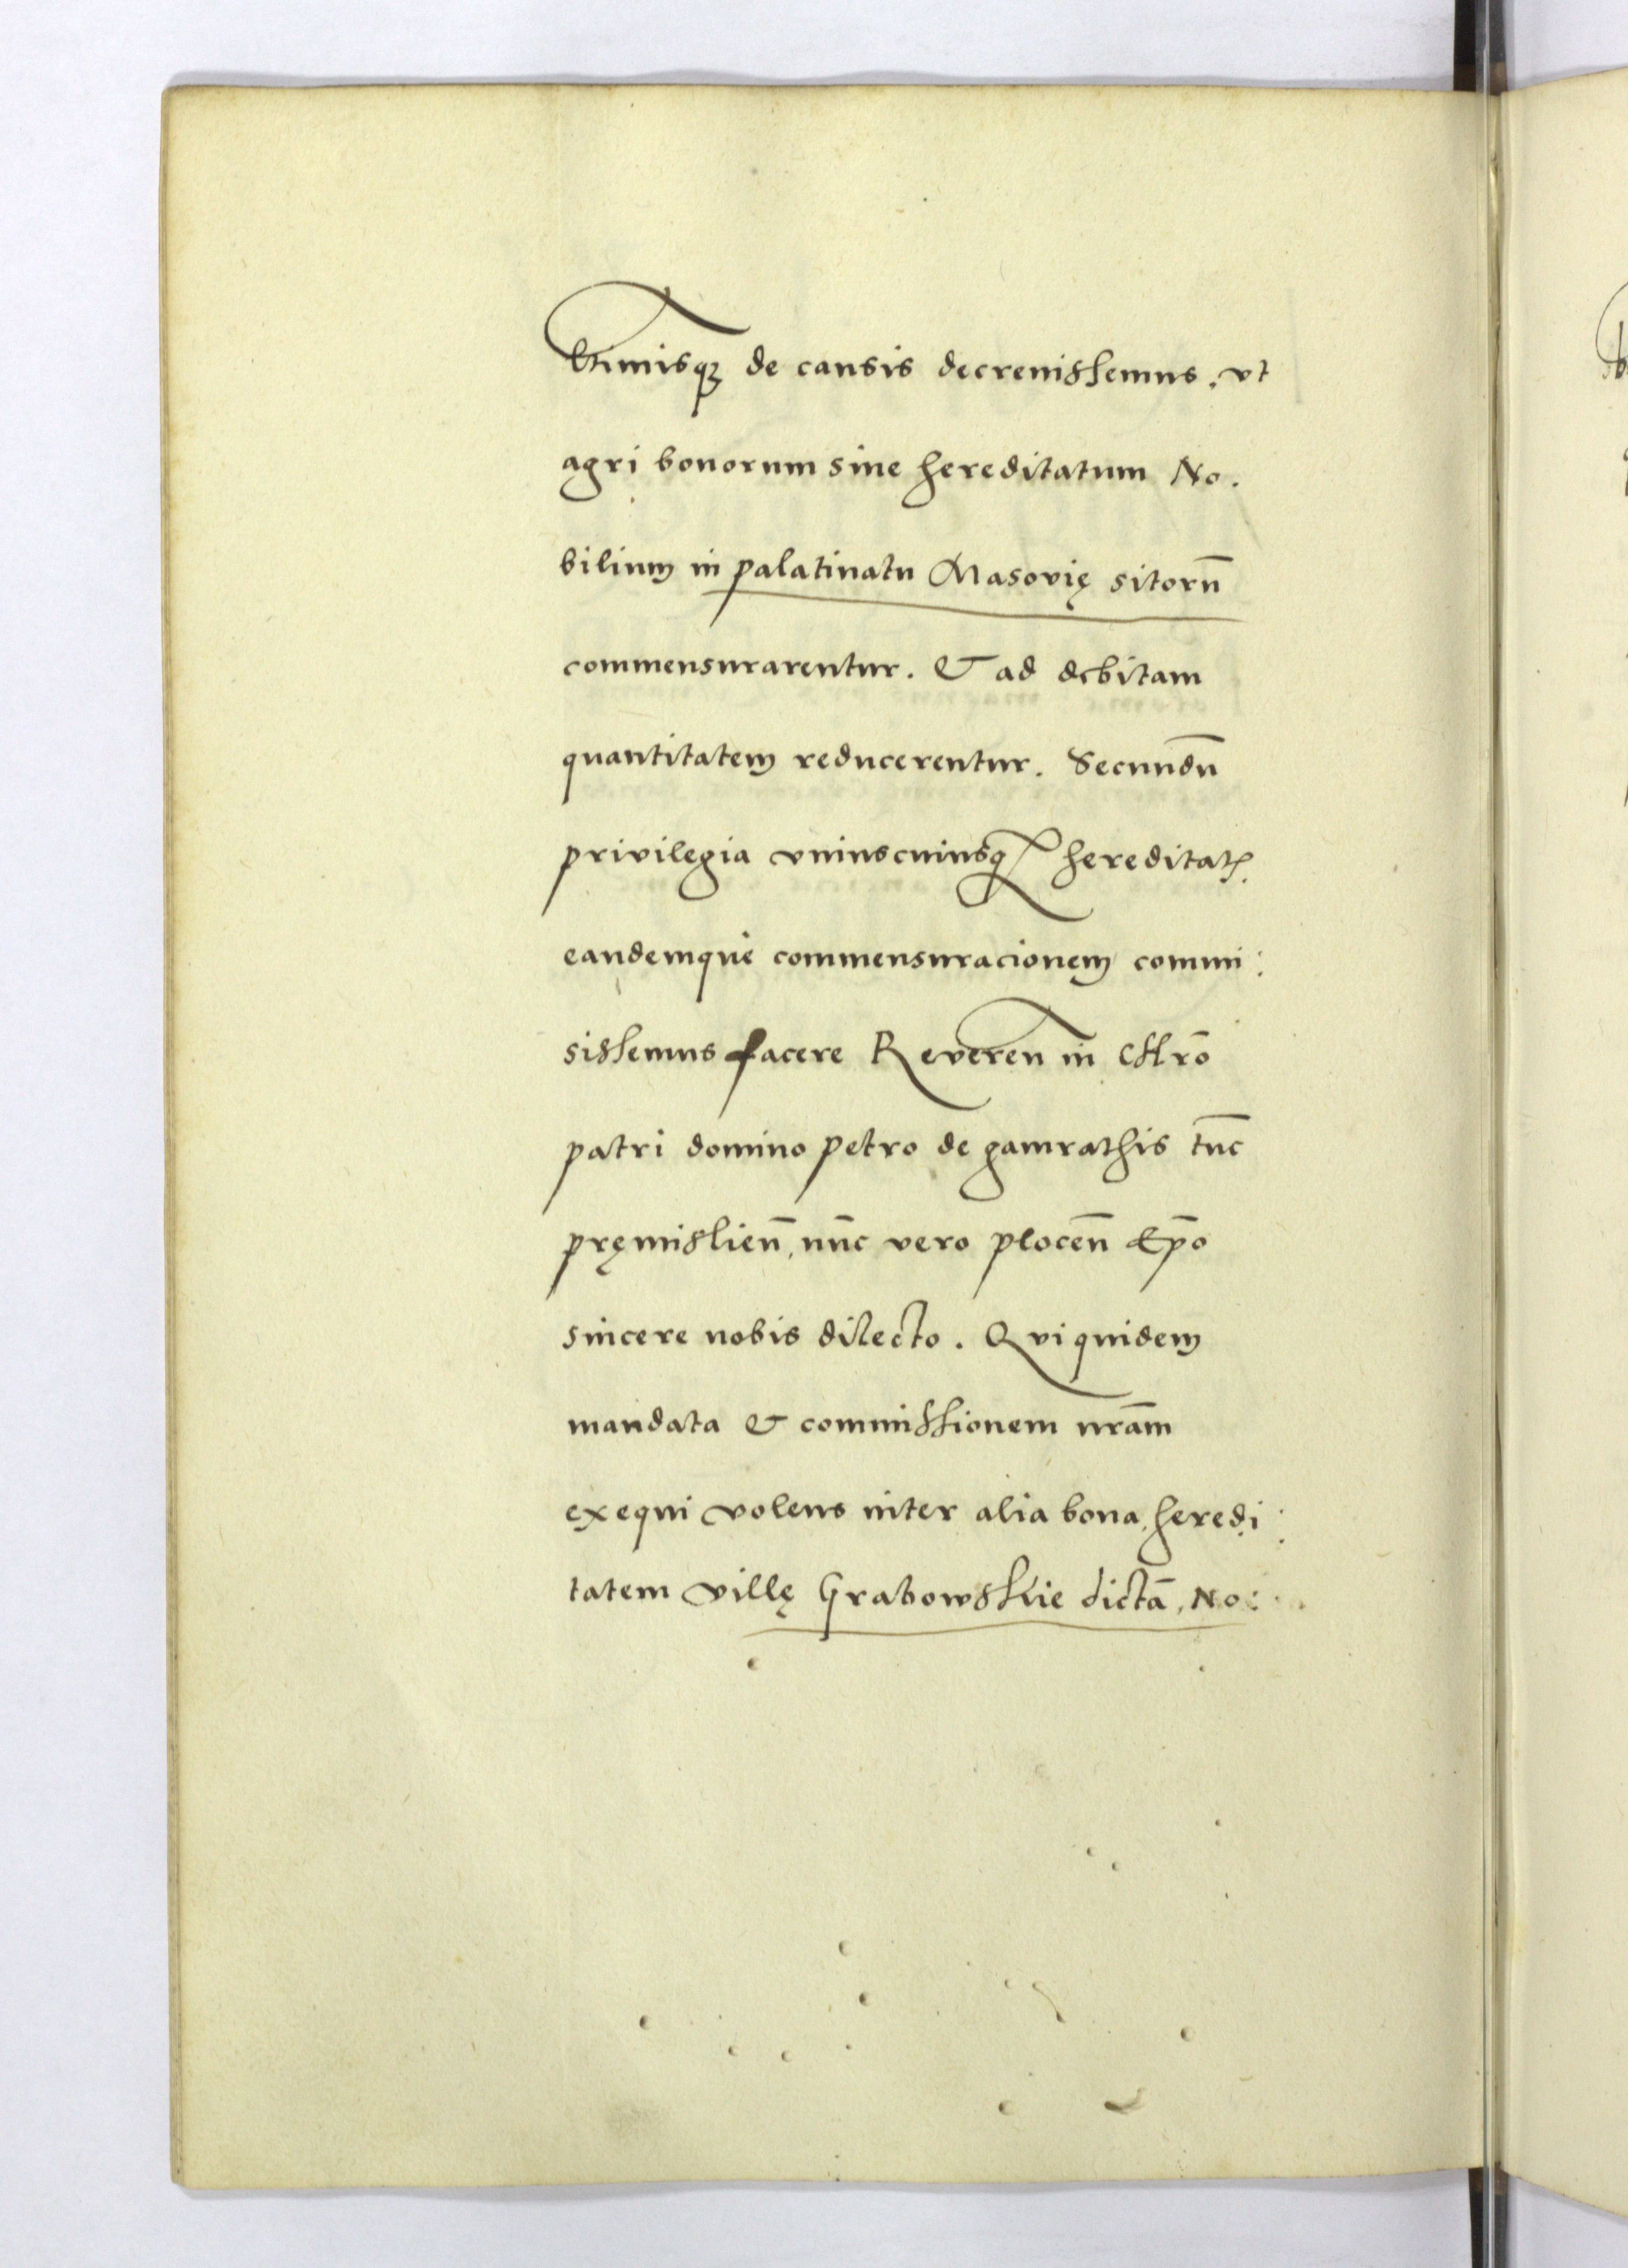 timisq de causis decrevissemus. vt
agri bonorum sive hereditatum No.
bilium in palatinatu Masovię sitorū
commensurarentur. & ad debitam
quantitatem reducerentur. Secundū
privilegia vniuscuiusq hereditatꝭ.
eandemque commensuracionem commi:
sissemus facere Reveren in Chro̅
patri domino petro de gamrathis tu̅c
pręmislien̅, nu̅c vero plocen̅ Ep̅o
sincere nobis dilecto. Qui quidem
mandata & commissionem nra̅m
exequi volens inter alia bona heredi:
tatem villę Grabowskie dicta̅, No: